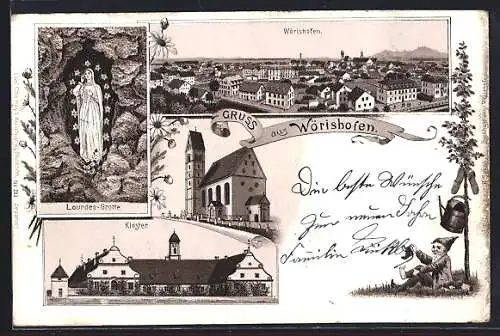 Wörishofen.
GRUSS aus Wörishofen.
Lourdes-Grotte
Kloster
Die besten Wünsche
zum neuen Jahr
Familie